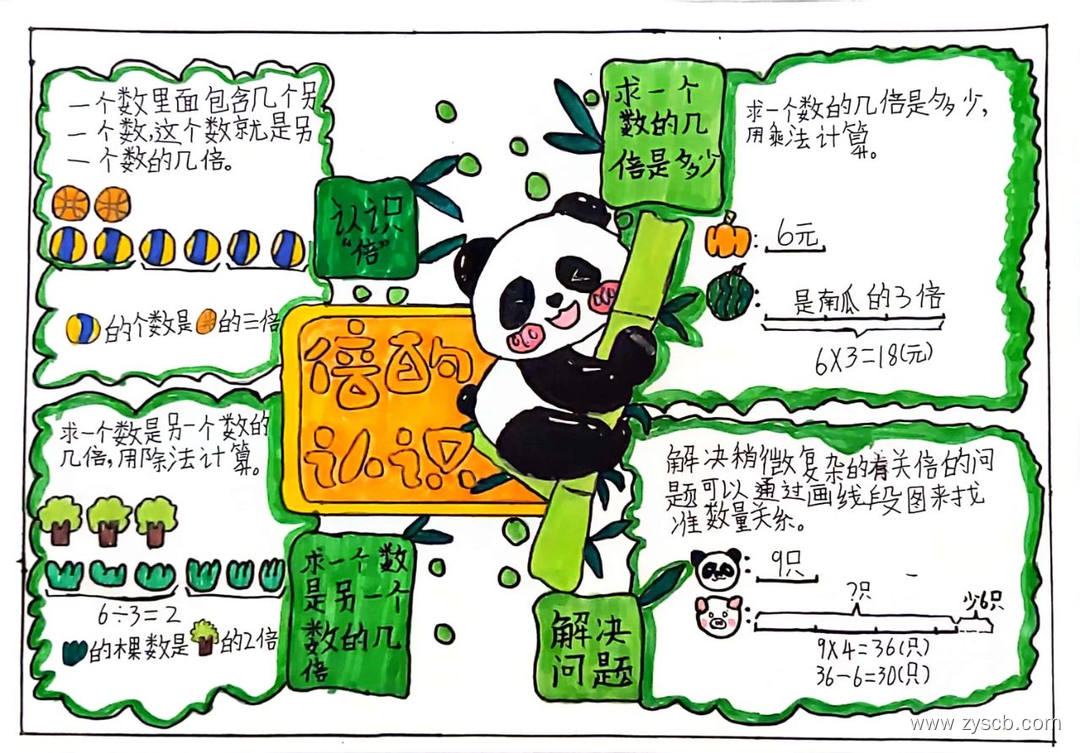 一个数里面包含几个另
一个数,这个数就是另
一个数的几倍。
的个数是
的三倍
认识
“倍”
求一个
数的几
倍是多少
求一个数的几倍是多少,
用乘法计算。
: 6元
: 是南瓜的3倍
6×3=18(元)
倍的
认识
求一个数是另一个数的
几倍,用除法计算。
6÷3=2
的棵数是
的2倍
求一个数
是另一个
数的几
倍
解决
问题
解决稍微复杂的有关倍的问
题可以通过画线段图来找
准数量关系。
: 9只
:
?只
少6只
9×4=36(只)
36-6=30(只)
www.zyscb.com